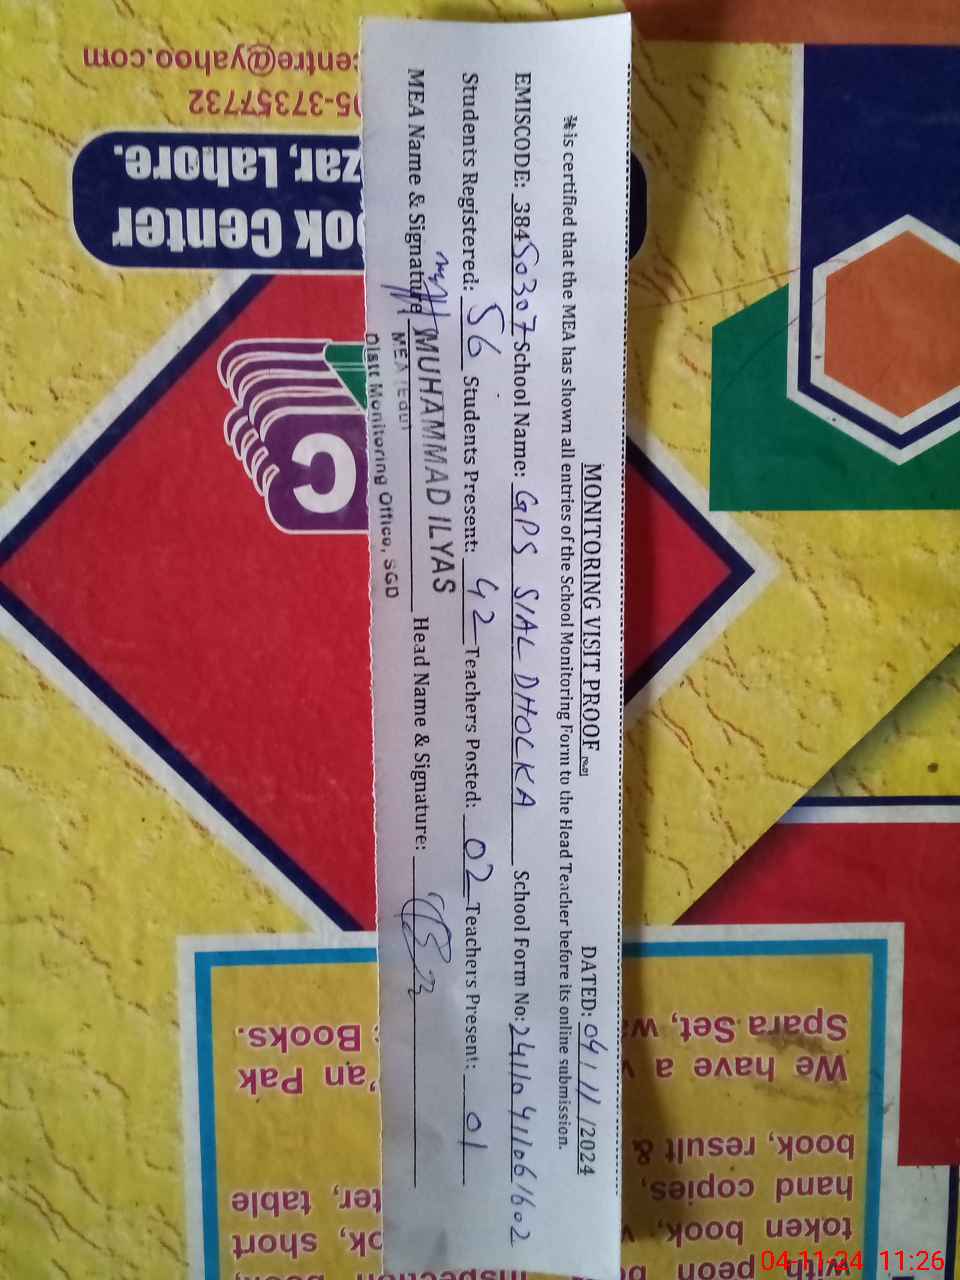 MONITORING VISIT PROOF DATED: 04/11/2024
is certified that the MEA has shown all entries of the School Monitoring Form to the Head Teacher before its online submission.
EMISCODE: 38450307 School Name: GPS SIAL DHOCKA School Form No: 24110411061602
Students Registered: 56 Students Present: 42 Teachers Posted: 02 Teachers Present: 01
MEA Name & Signature MUHAMMAD ILYAS Head Name & Signature:
MEA (Edu)
Distt Monitoring Office, SGD
entre@yahoo.com
05-37357732
ok Center
zar, Lahore.
We have a
Spara Set,
an Pak
Books.
with peon
token book,
hand copies,
book, result &
ok, short
ter, table
04-11-24 11:26